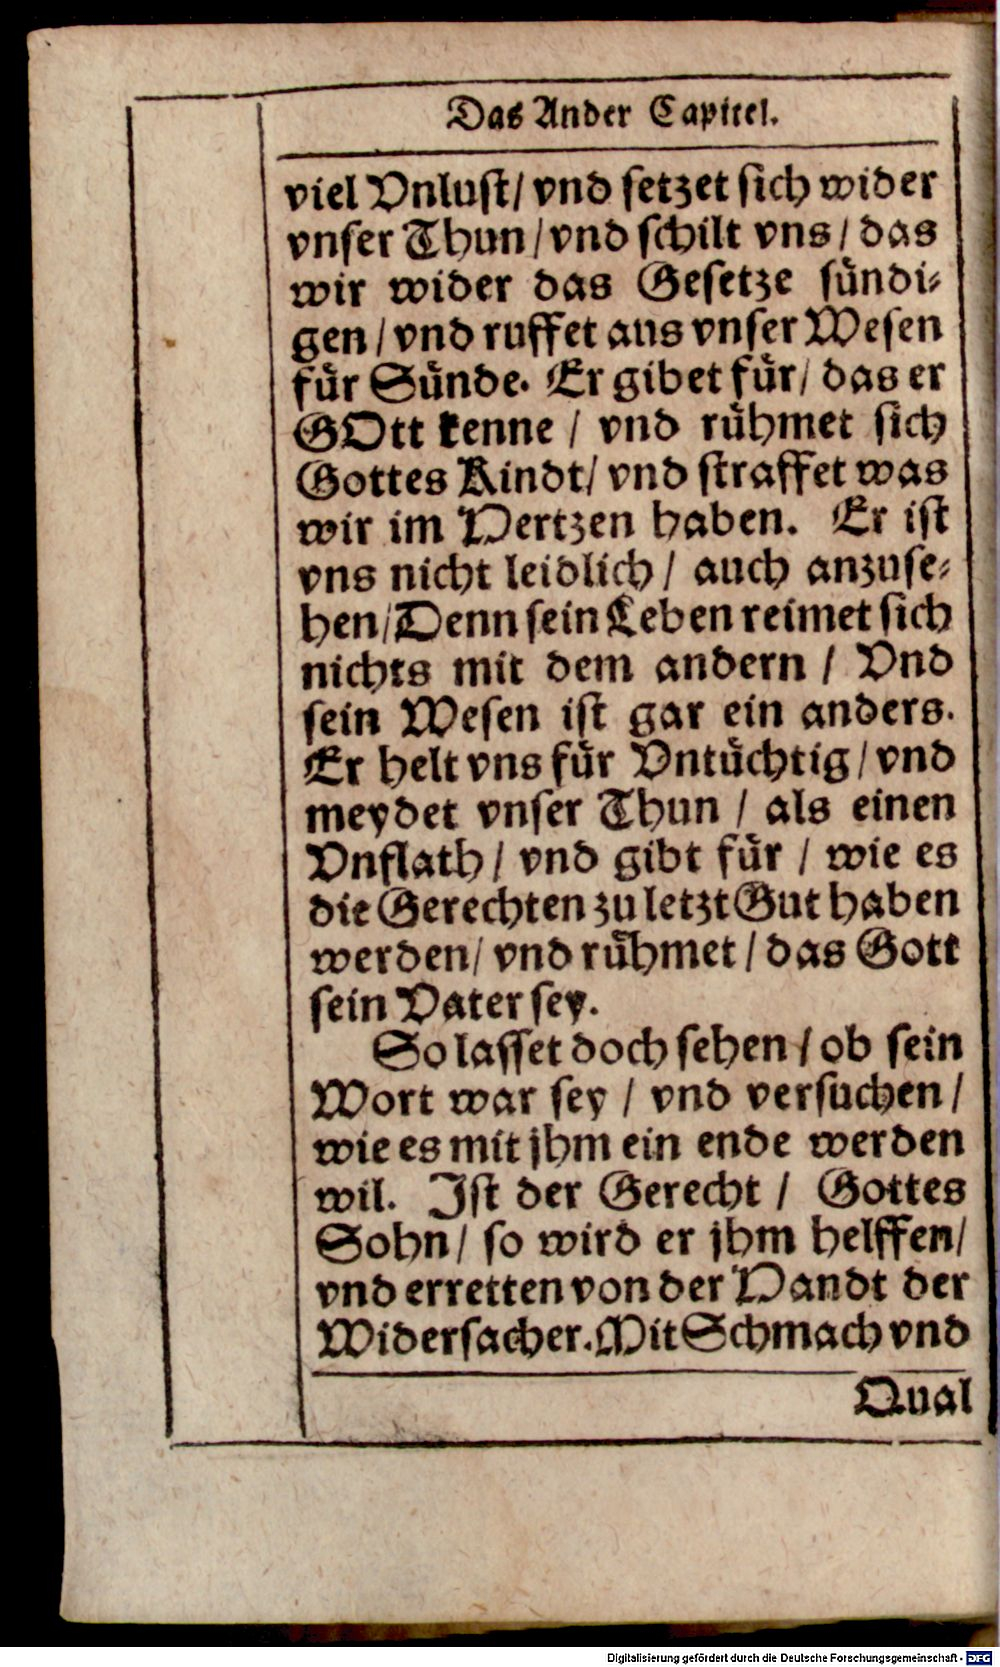 Das Ander Capitel.
viel Vnlust/ vnd setzet sich wider
vnser Thun/ vnd schilt vns/ das
wir wider das Gesetze sündi⸗
gen/ vnd ruffet aus vnser Wesen
für Sünde. Er gibet für/ das er
GOtt kenne/ vnd rühmet sich
Gottes Kindt/ vnd straffet was
wir im Hertzen haben. Er ist
vns nicht leidlich/ auch anzuse⸗
hen/ Denn sein Leben reimet sich
nichts mit dem andern/ Vnd
sein Wesen ist gar ein anders.
Er helt vns für Vntüchtig/ vnd
meydet vnser Thun/ als einen
Vnflath/ vnd gibt für/ wie es
die Gerechten zu letzt Gut haben
werden/ vnd rühmet/ das Gott
sein Vater sey.
So lasset doch sehen/ ob sein
Wort war sey/ vnd versuchen/
wie es mit jhm ein ende werden
wil. Jst der Gerecht/ Gottes
Sohn/ so wird er jhm helffen/
vnd erretten von der Handt der
Widersacher. Mit Schmach vnd
Qual
Digitalisierung gefördert durch die Deutsche Forschungsgemeinschaft - DFG